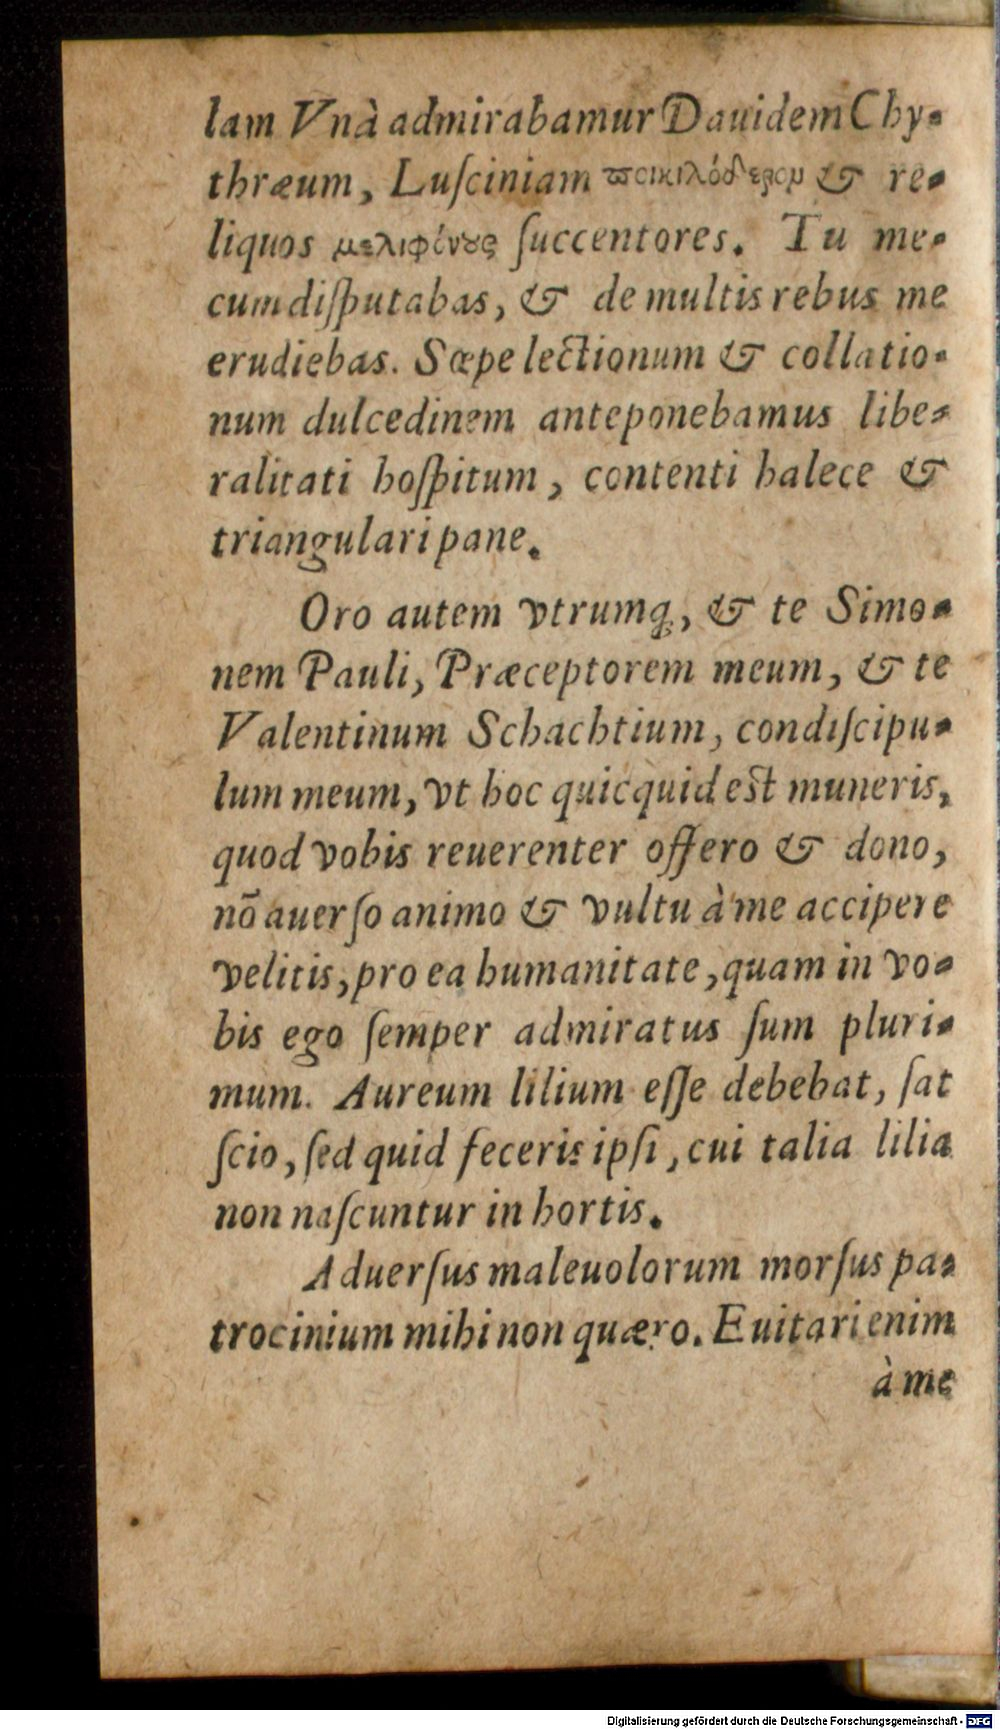 lam Vnà admirabamur Dauidem Chy-
thræum, Luſciniam ποικιλόδερον & re-
liquos μελιφώνους ſuccentores. Tu me-
cum diſputabas, & de multis rebus me
erudiebas. Sæpe lectionum & collatio-
num dulcedinem anteponebamus libe-
ralitati hoſpitum, contenti halece &
triangulari pane.
Oro autem vtrumq́;, & te Simo-
nem Pauli, Præceptorem meum, & te
Valentinum Schachtium, condiſcipu-
lum meum, vt hoc quicquid eſt muneris,
quod vobis reuerenter offero & dono,
nō auerſo animo & vultu à me accipere
velitis, pro ea humanitate, quam in vo-
bis ego ſemper admiratus ſum pluri-
mum. Aureum lilium eſſe debebat, ſat
ſcio, ſed quid feceris ipſi, cui talia lilia
non naſcuntur in hortis.
Aduerſus maleuolorum morſus pa-
trocinium mihi non quæro. Euitari enim
à me
Digitalisierung gefördert durch die Deutsche Forschungsgemeinschaft - DFG